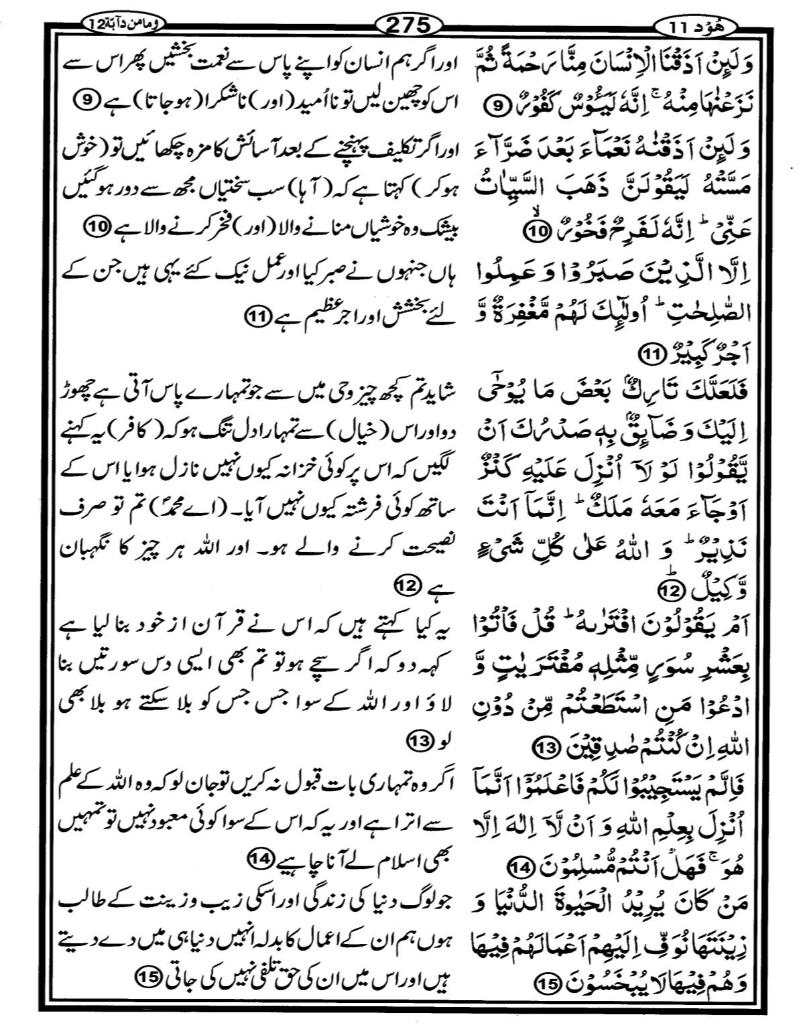 هُوْد 11
275
وما من دآبة 12
وَلَئِنْ اَذَقْنَا الْاِنْسَانَ مِنَّا رَحْمَةً ثُمَّ
نَزَعْنٰهَا مِنْهُ ۚ اِنَّهٗ لَيَـُٔوْسٌ كَفُوْرٌ 9
وَلَئِنْ اَذَقْنٰهُ نَعْمَآءَ بَعْدَ ضَرَّآءَ
مَسَّتْهُ لَيَقُوْلَنَّ ذَهَبَ السَّيِّاٰتُ
عَنِّيْ ؕ اِنَّهٗ لَفَرِحٌ فَخُوْرٌ ۙ 10
اِلَّا الَّذِيْنَ صَبَرُوْا وَعَمِلُوا
الصّٰلِحٰتِ ؕ اُولٰٓئِكَ لَهُمْ مَّغْفِرَةٌ وَّ
اَجْرٌ كَبِيْرٌ 11
فَلَعَلَّكَ تَارِكٌۢ بَعْضَ مَا يُوْحٰٓى
اِلَيْكَ وَضَآئِقٌۢ بِهٖ صَدْرُكَ اَنْ
يَّقُوْلُوْا لَوْ لَاۤ اُنْزِلَ عَلَيْهِ كَنْزٌ
اَوْ جَآءَ مَعَهٗ مَلَكٌ ؕ اِنَّمَاۤ اَنْتَ
نَذِيْرٌ ؕ وَ اللّٰهُ عَلٰى كُلِّ شَيْءٍ
وَّكِيْلٌ ؕ 12
اَمْ يَقُوْلُوْنَ افْتَرٰىهُ ؕ قُلْ فَاْتُوْا
بِعَشْرِ سُوَرٍ مِّثْلِهٖ مُفْتَرَيٰتٍ وَّ
ادْعُوْا مَنِ اسْتَطَعْتُمْ مِّنْ دُوْنِ
اللّٰهِ اِنْ كُنْتُمْ صٰدِقِيْنَ 13
فَاِلَّمْ يَسْتَجِيْبُوْا لَكُمْ فَاعْلَمُوْۤا اَنَّمَاۤ
اُنْزِلَ بِعِلْمِ اللّٰهِ وَ اَنْ لَّاۤ اِلٰهَ اِلَّا
هُوَ ۚ فَهَلْ اَنْتُمْ مُّسْلِمُوْنَ 14
مَنْ كَانَ يُرِيْدُ الْحَيٰوةَ الدُّنْيَا وَ
زِيْنَتَهَا نُوَفِّ اِلَيْهِمْ اَعْمَالَهُمْ فِيْهَا
وَهُمْ فِيْهَا لَا يُبْخَسُوْنَ 15
اور اگر ہم انسان کو اپنے پاس سے نعمت بخشیں پھر اس سے
اس کو چھین لیں تو نا اُمید (اور) ناشکرا (ہوجاتا) ہے 9
اور اگر تکلیف پہنچنے کے بعد آسائش کا مزہ چکھائیں تو (خوش
ہوکر) کہتا ہے کہ (آہا) سب سختیاں مجھ سے دور ہوگئیں
بیشک وہ خوشیاں منانے والا (اور) فخر کرنے والا ہے 10
ہاں جنہوں نے صبر کیا اور عمل نیک کئے یہی ہیں جن کے
لئے بخشش اور اجر عظیم ہے 11
شاید تم کچھ چیز وحی میں سے جو تمہارے پاس آتی ہے چھوڑ
دو اور اس (خیال) سے تمہارا دل تنگ ہو کہ (کافر) یہ کہنے
لگیں کہ اس پر کوئی خزانہ کیوں نہیں نازل ہوا یا اس کے
ساتھ کوئی فرشتہ کیوں نہیں آیا۔ (اے محمدؐ) تم تو صرف
نصیحت کرنے والے ہو۔ اور اللہ ہر چیز کا نگہبان
ہے 12
یہ کیا کہتے ہیں کہ اس نے قرآن از خود بنا لیا ہے
کہہ دو کہ اگر سچے ہو تو تم بھی ایسی دس سورتیں بنا
لاؤ اور اللہ کے سوا جس جس کو بلا سکتے ہو بلا بھی
لو 13
اگر وہ تمہاری بات قبول نہ کریں تو جان لو کہ وہ اللہ کے علم
سے اترا ہے اور یہ کہ اس کے سوا کوئی معبود نہیں تو تمہیں
بھی اسلام لے آنا چاہیے 14
جو لوگ دنیا کی زندگی اور اسکی زیب و زینت کے طالب
ہوں ہم ان کے اعمال کا بدلہ انہیں دنیا ہی میں دے دیتے
ہیں اور اس میں ان کی حق تلفی نہیں کی جاتی 15